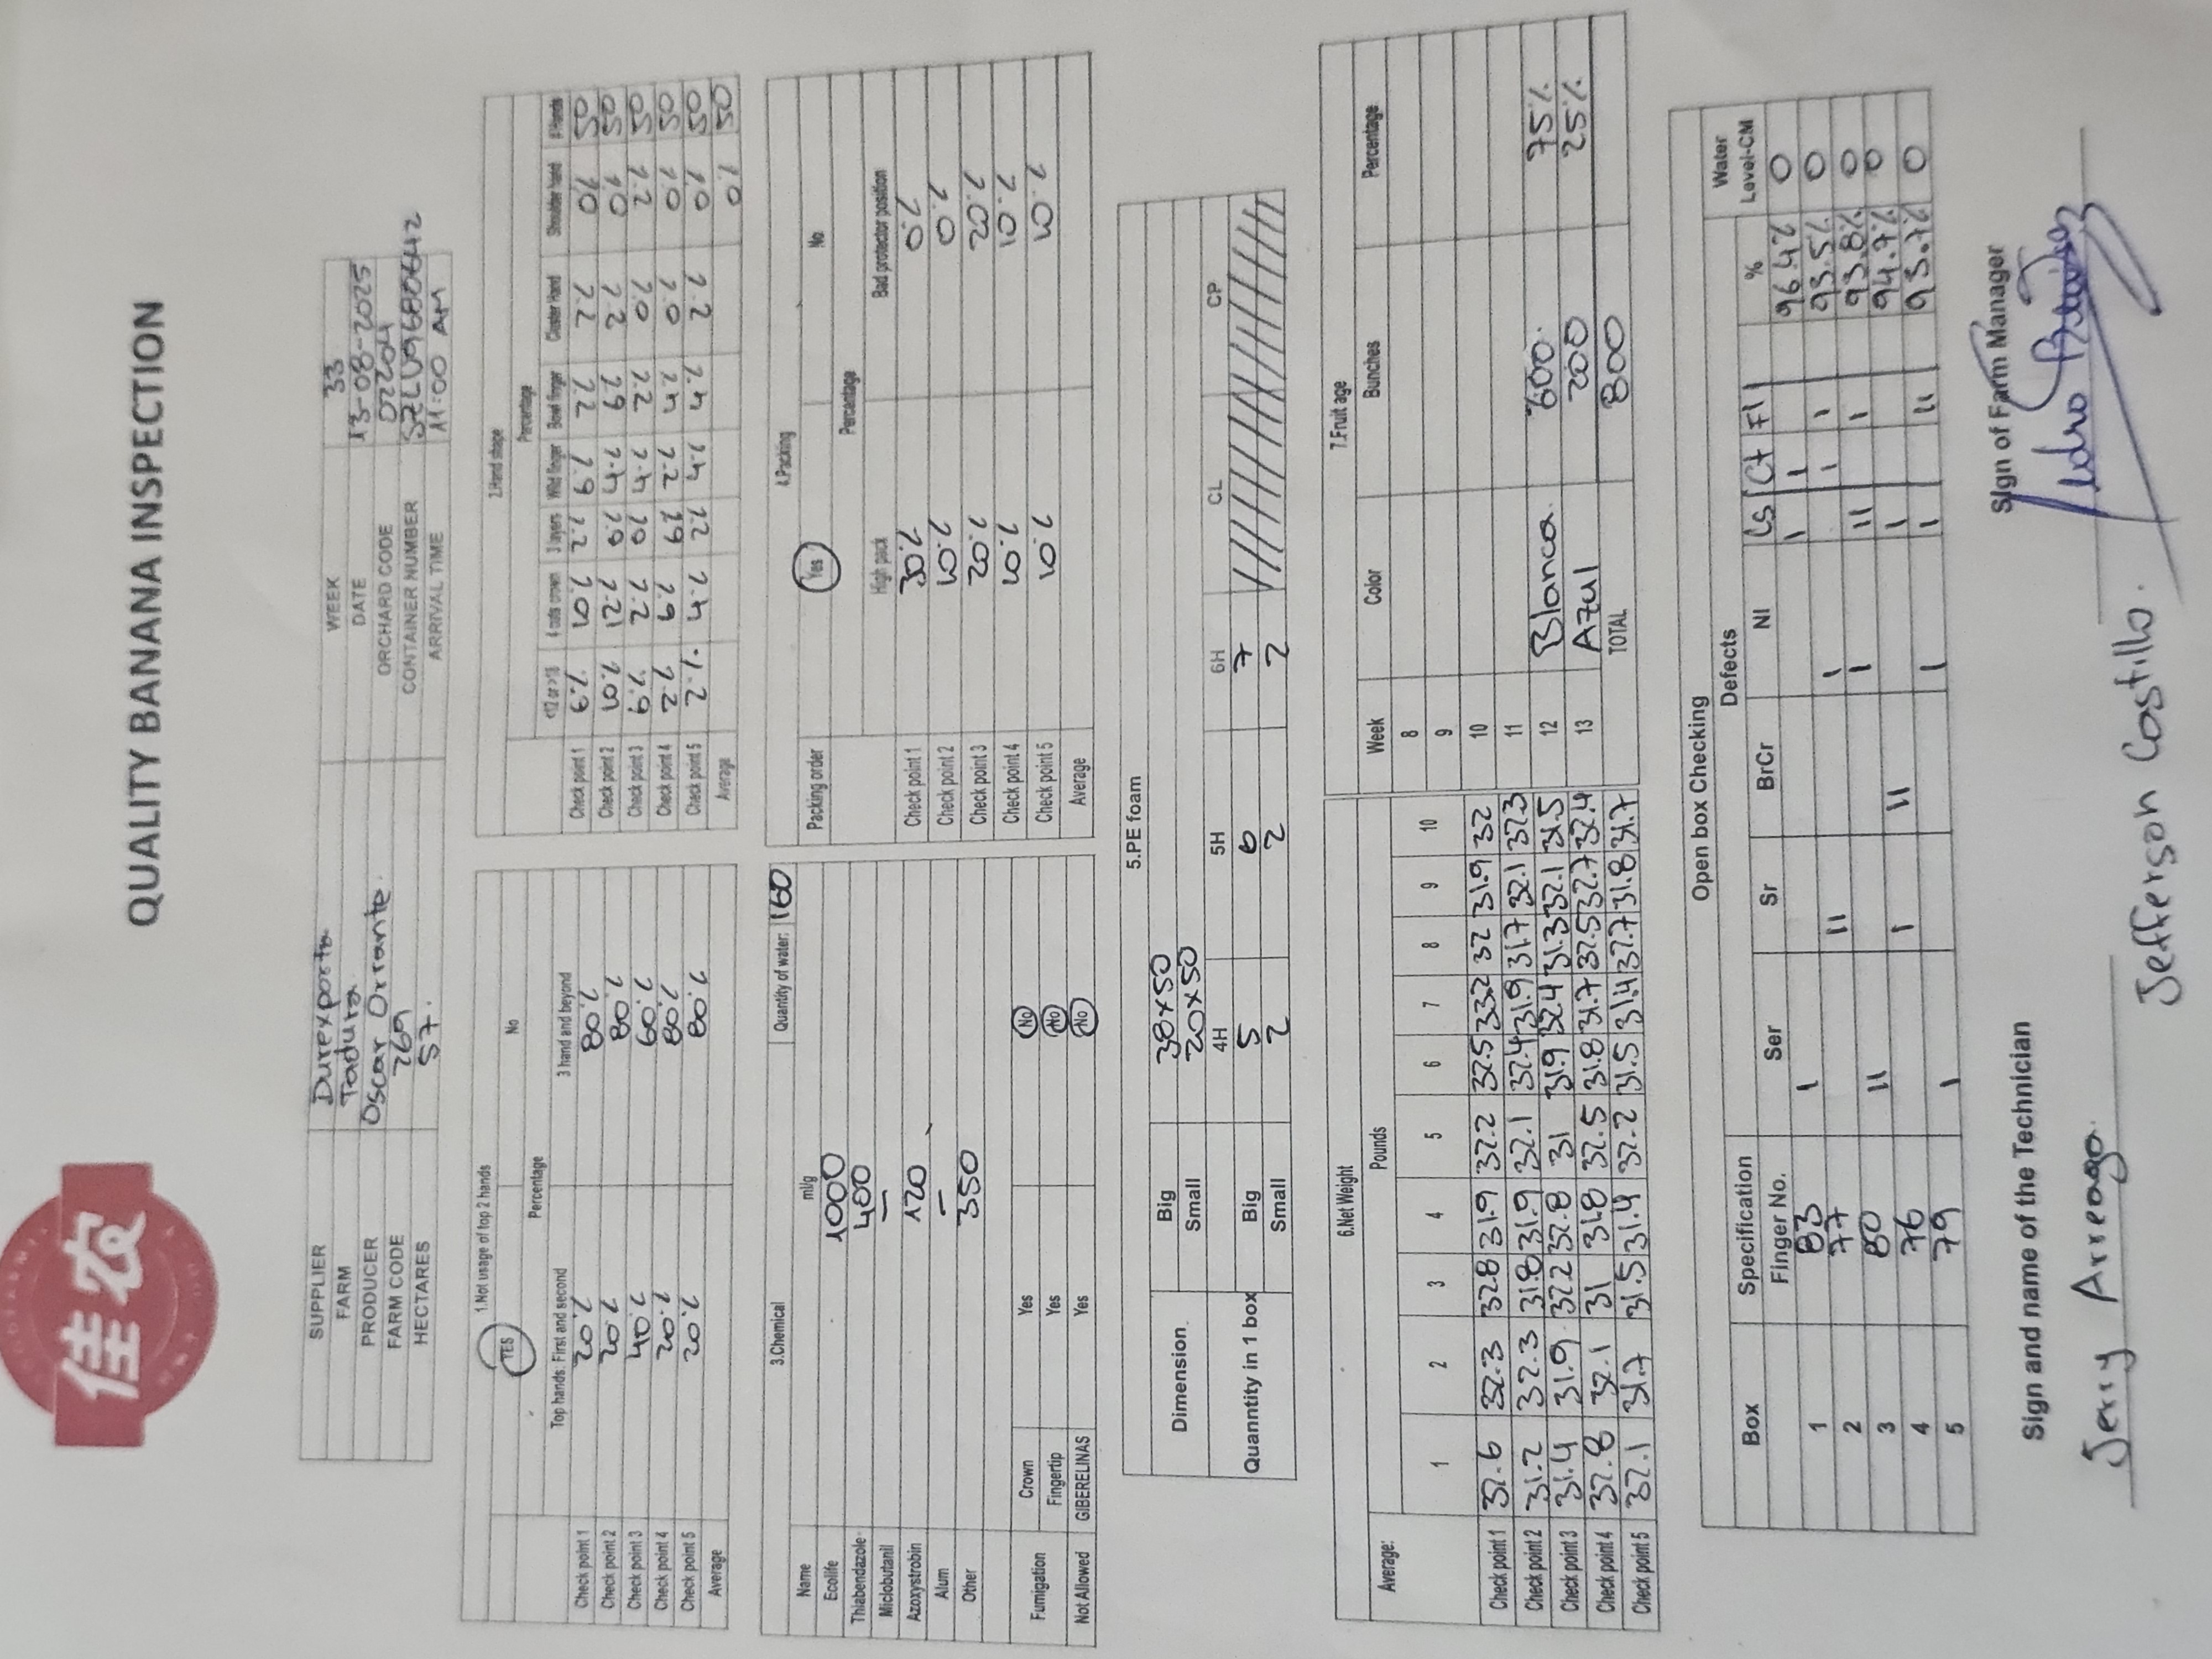 佳农
QUALITY BANANA INSPECTION
SUPPLIER Durexporta WEEK 33
FARM Tadura DATE 13-08-2025
PRODUCER Oscar Orrante. ORCHARD CODE 02204
FARM CODE 269 CONTAINER NUMBER SZLU9680642
HECTARES 57. ARRIVAL TIME 11:00 AM
1.Not usage of top 2 hands
YES No
Percentage
Top hands: First and second 3 hand and beyond
Check point 1 20% 80%
Check point 2 20% 80%
Check point 3 40% 60%
Check point 4 20% 80%
Check point 5 20% 80%
Average
2.Hand shape
Percentage
<12 or >18 4 cuts crown 3 layers Wild finger Bowl finger Cluster Hand Shoulder hand # Hands
Check point 1 6% 10% 2% 6% 2% 2% 0% 50
Check point 2 10% 12% 0% 4% 6% 2% 0% 50
Check point 3 6% 2% 0% 4% 2% 0% 2% 50
Check point 4 2% 6% 6% 2% 4% 0% 0% 50
Check point 5 2%. 4% 2% 4% 4% 2% 0% 50
Average 0% 50
3.Chemical Quantity of water: 160
Name ml/g
Ecolife 1000
Thiabendazole 400
Miclobutanil —
Azoxystrobin 120
Alum —
Other 350
Fumigation Crown Yes No
Fingertip Yes No
Not Allowed GIBERELINAS Yes No
4.Packing
Packing order Yes No
Percentage
High pack Bad protector position
Check point 1 30% 0%
Check point 2 10% 0%
Check point 3 20% 20%
Check point 4 10% 10%
Check point 5 10% 10%
Average
5.PE foam
Dimension Big 38x50
Small 20x50
4H 5H 6H CL CP
Quanntity in 1 box Big 5 6 7
Small 2 2 2
6.Net Weight
Average: Pounds
1 2 3 4 5 6 7 8 9 10
Check point 1 32.6 32.3 32.8 31.9 32.2 32.5 33.2 32 31.9 32
Check point 2 31.2 32.3 31.8 31.9 32.1 32.4 31.9 31.7 32.1 32.3
Check point 3 31.4 31.9 32.2 32.8 31 31.9 32.4 31.3 32.1 31.5
Check point 4 32.8 32.1 31 31.8 32.5 31.8 31.7 32.5 32.7 32.4
Check point 5 32.1 31.7 31.5 31.4 32.2 31.5 31.4 32.7 31.8 31.7
7.Fruit age
Week Color Bunches Percentage
8
9
10
11
12 Blanca. 600. 75%
13 Azul 200 25%
TOTAL 800
Open box Checking
Box Specification Defects Water
Finger No. Ser Sr BrCr NI Cs Ct Fl % Level-CM
1 83 I I I 96.4% 0
2 77 II I I I 93.5% 0
3 80 II I II I 93.8% 0
4 76 I II I 94.7% 0
5 79 I I I II 93.7% 0
Sign and name of the Technician Sign of Farm Manager
Jerry Arreaga. Pedro
Jefferson Castillo.